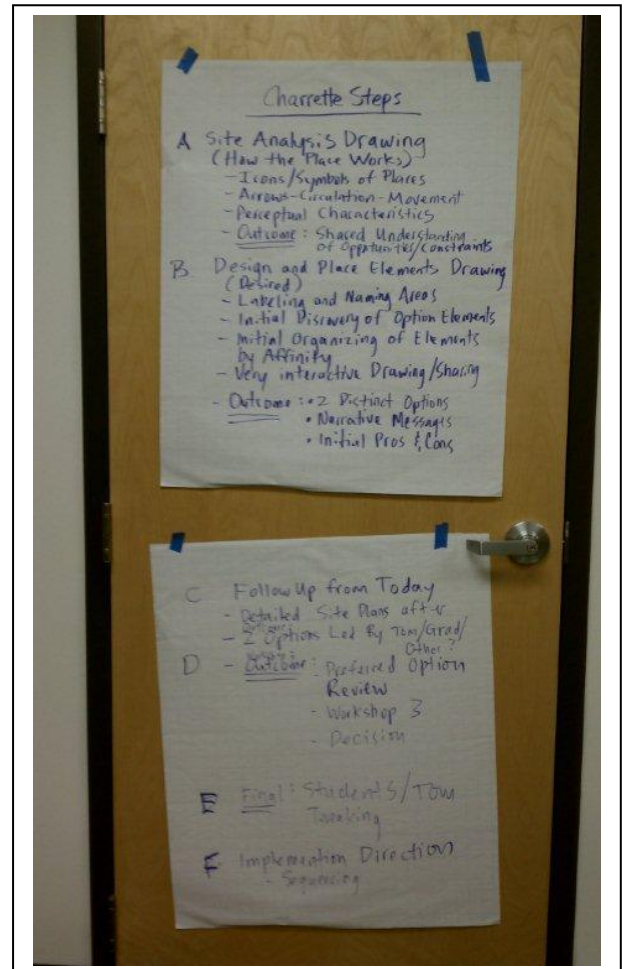 Charrette Steps
A Site Analysis Drawing
(How the Place Works)
- Icons/Symbols of Places
- Arrows-Circulation-Movement
- Perceptual Characteristics
- Outcome: Shared Understanding
of Opportunities/Constraints
B. Design and Place Elements Drawing
(Desired)
- Labeling and Naming Areas
- Initial Discovery of Option Elements
- Initial Organizing of Elements
by Affinity
- Very interactive Drawing/Sharing
- Outcome: • 2 Distinct Options
• Narrative Messages
• Initial Pros & Cons
C Follow Up from Today
- Detailed Site Plans after
- 2 Options Led By Tom/Grad/
Other?
D - Outcome: - Preferred Option
Review
- Workshop 3
- Decision
E Final: Students/Tom
Tweaking
F Implementation Direction
- Sequencing